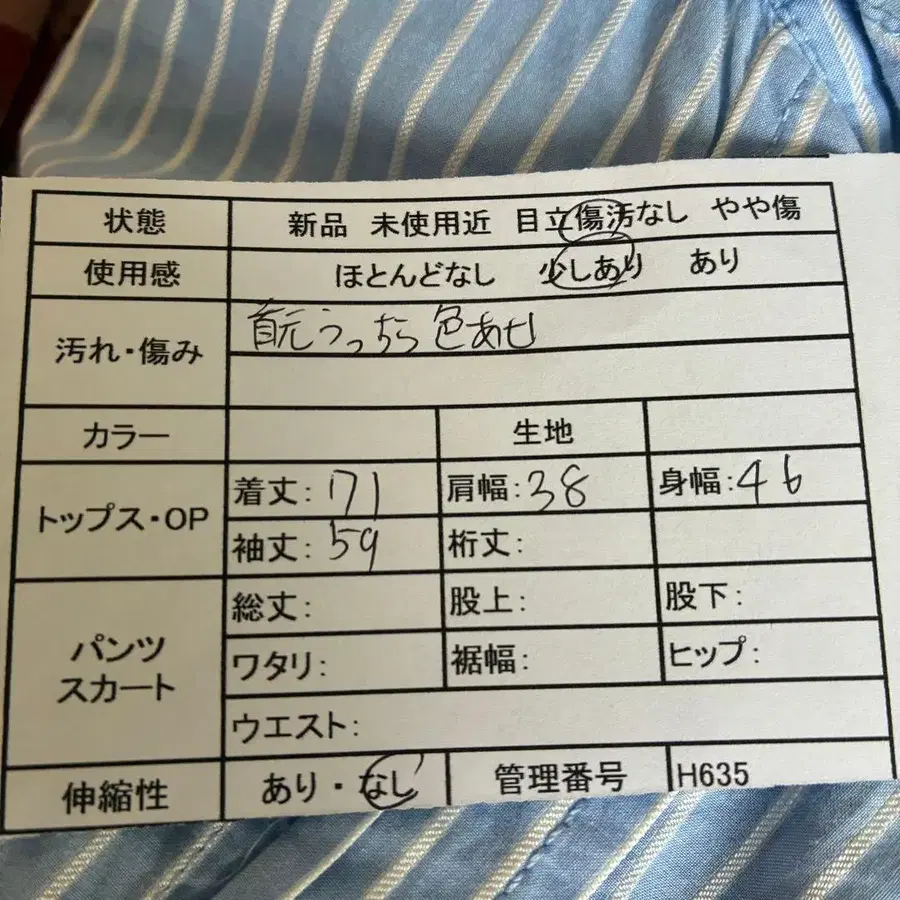 状態 新品 未使用近 目立傷汚なし やや傷
使用感 ほとんどなし 少しあり あり
汚れ・傷み 首元うっすら色あせ
カラー 生地
トップス・OP 着丈: 71 肩幅: 38 身幅: 46
袖丈: 59 裄丈:
パンツ スカート 総丈: 股上: 股下:
ワタリ: 裾幅: ヒップ:
ウエスト:
伸縮性 あり・なし 管理番号 H635